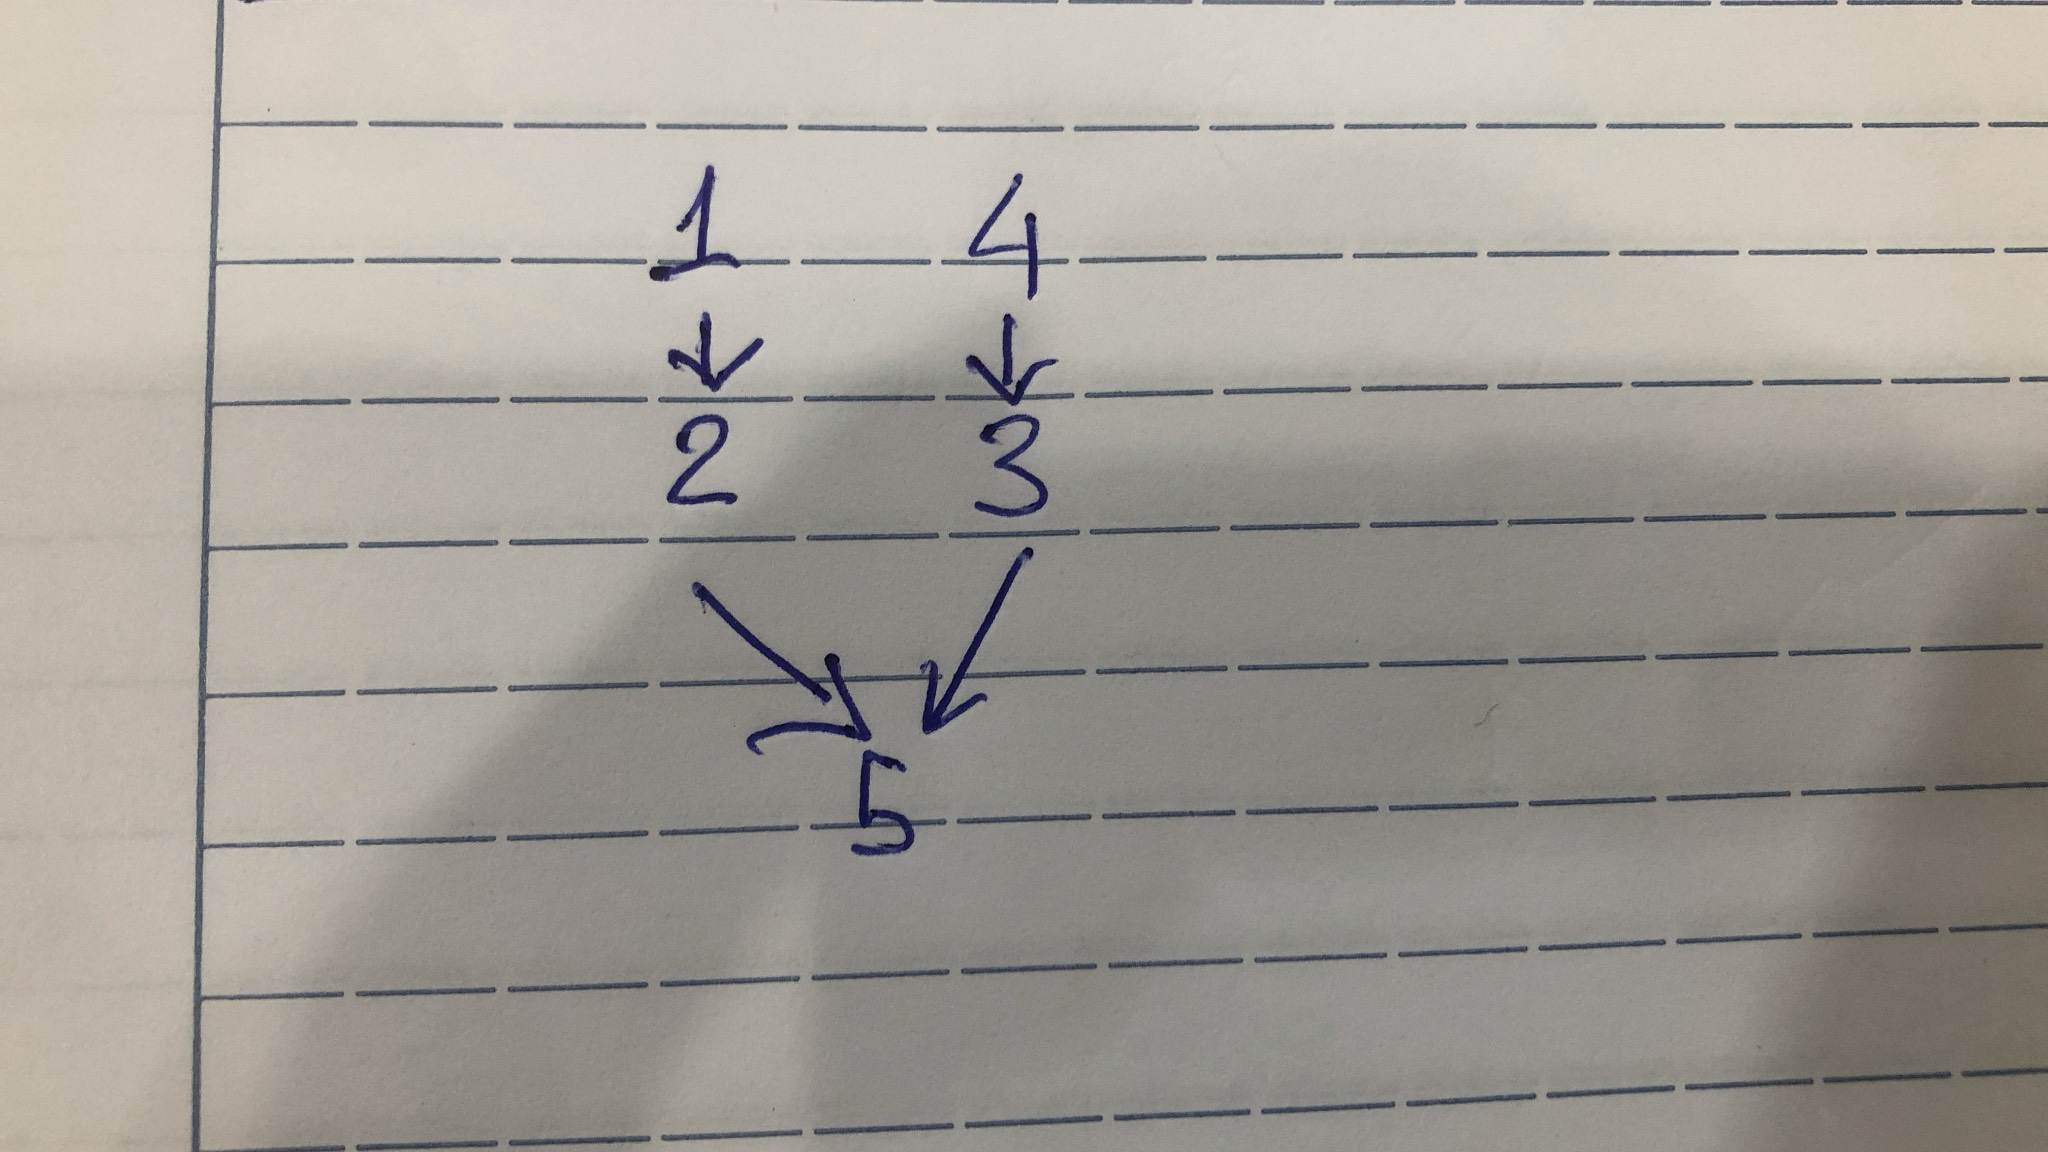 1 4
↓ ↓
2 3
↘ ↙
5